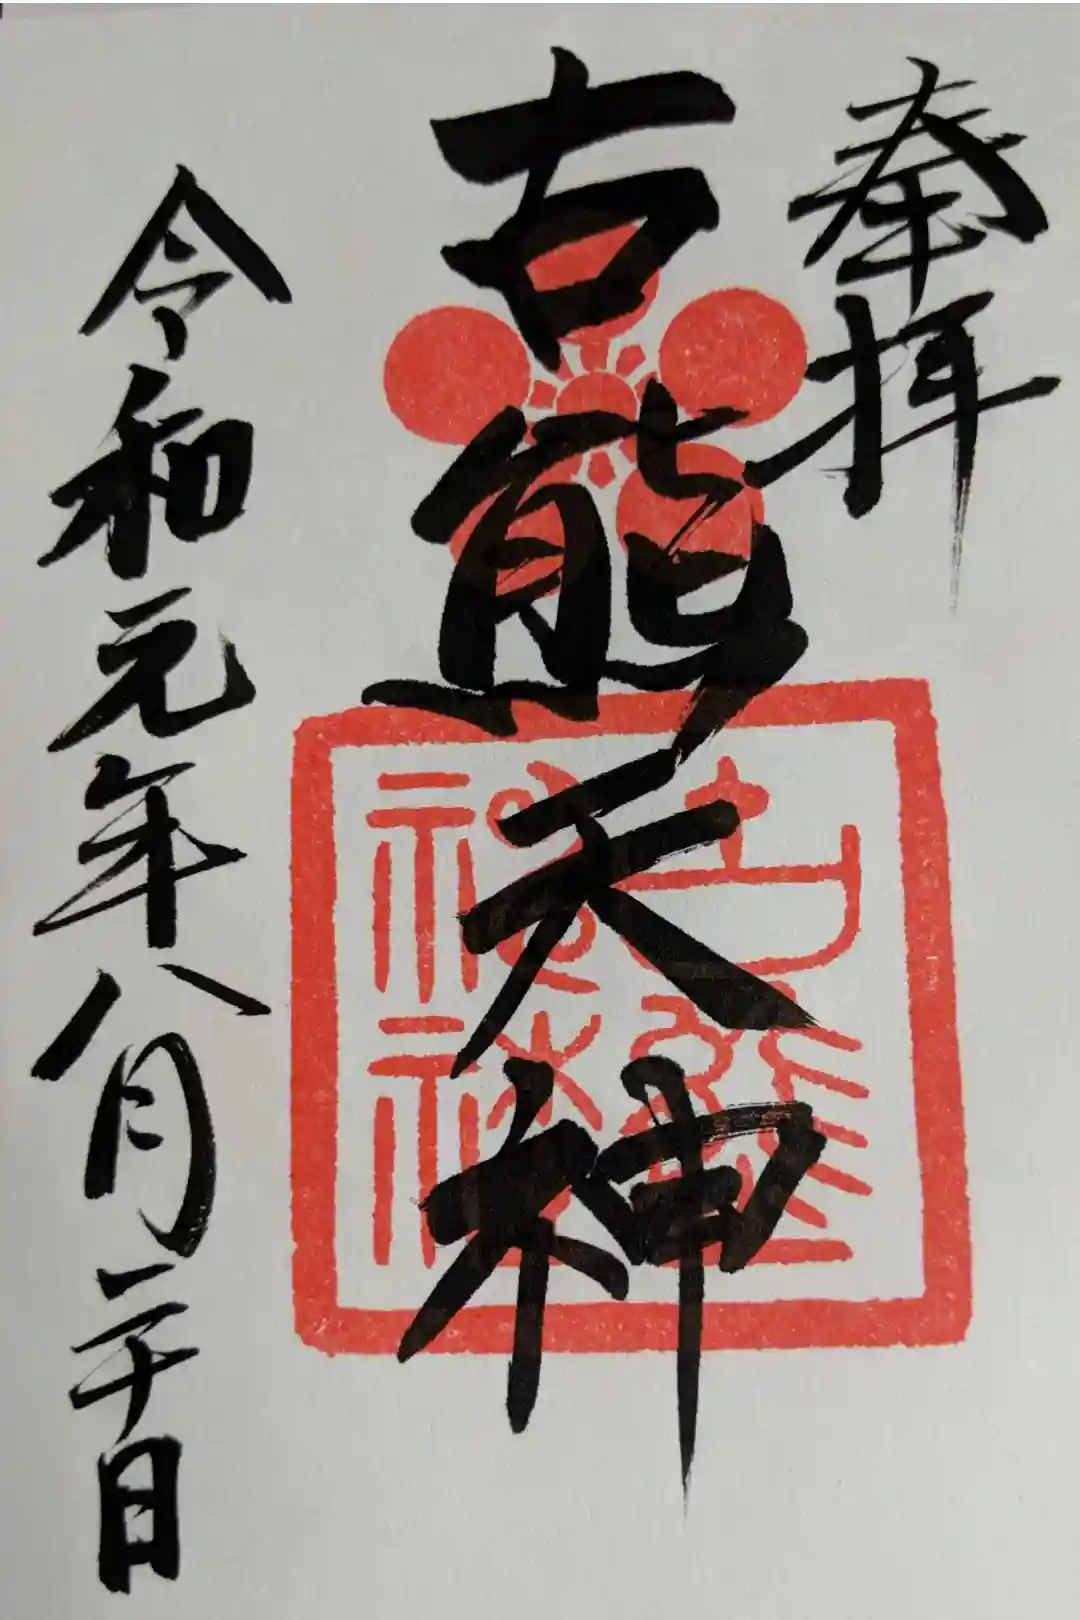 奉拝
古熊天神
古熊神社
令和元年八月二十日